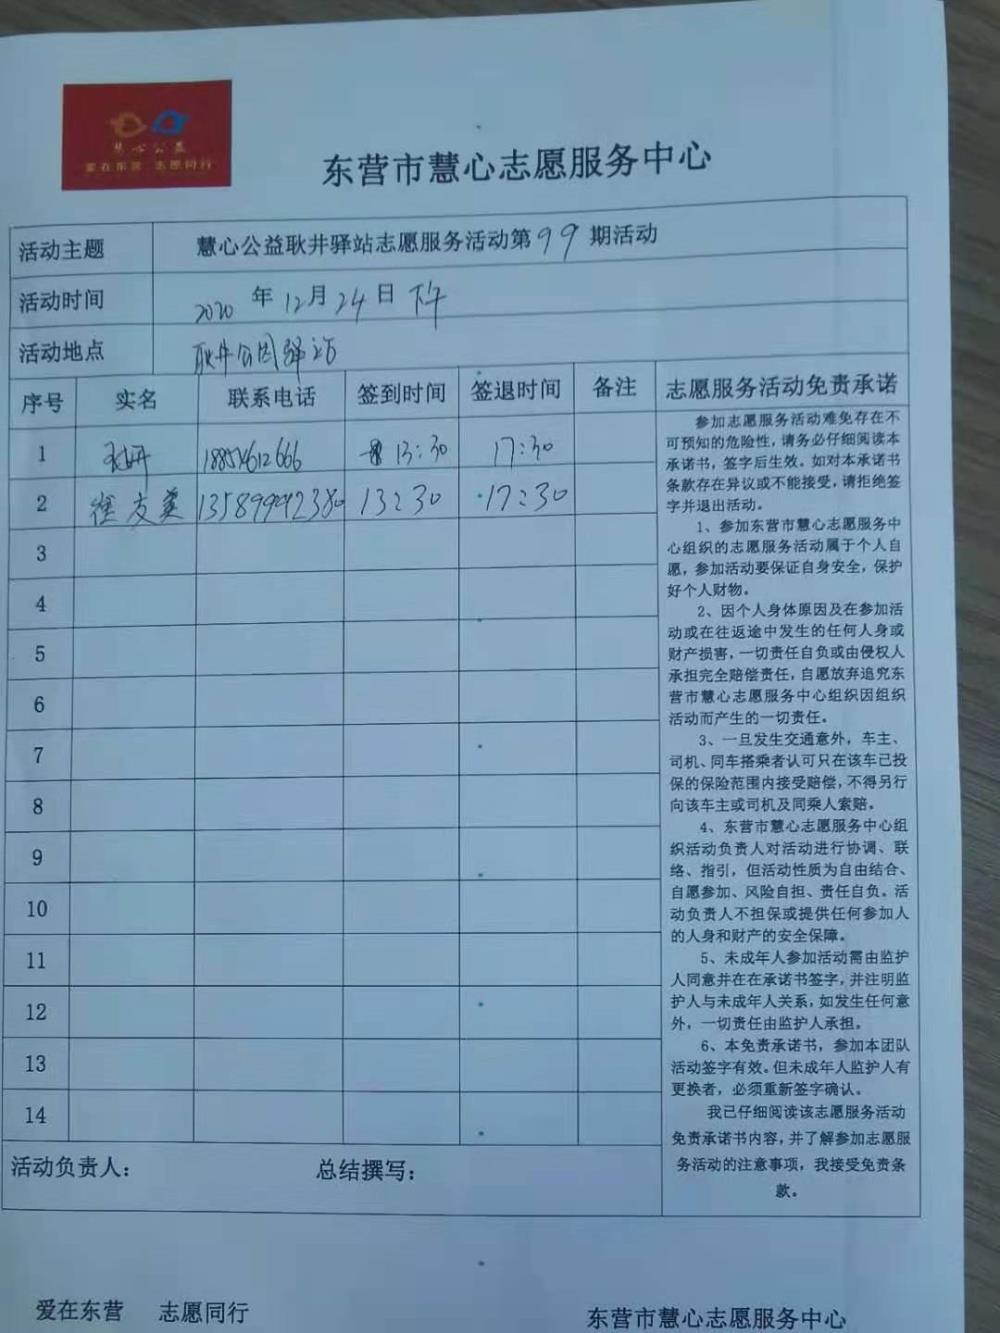 慧心公益
爱在东营 志愿同行
东营市慧心志愿服务中心
活动主题 慧心公益耿井驿站志愿服务活动第99期活动
活动时间 2020年12月24日下午
活动地点 耿井公园驿站
序号 实名 联系电话 签到时间 签退时间 备注
1 13:30 17:30
2 崔友美 13589992380 13:30 17:30
3
4
5
6
7
8
9
10
11
12
13
14
活动负责人: 总结撰写:
志愿服务活动免责承诺
参加志愿服务活动难免存在不
可预知的危险性,请务必仔细阅读本
承诺书,签字后生效。如对本承诺书
条款存在异议或不能接受,请拒绝签
字并退出活动。
1、参加东营市慧心志愿服务中
心组织的志愿服务活动属于个人自
愿,参加活动要保证自身安全,保护
好个人财物。
2、因个人身体原因及在参加活
动或在往返途中发生的任何人身或
财产损害,一切责任自负或由侵权人
承担完全赔偿责任,自愿放弃追究东
营市慧心志愿服务中心组织因组织
活动而产生的一切责任。
3、一旦发生交通意外,车主、
司机、同车搭乘者认可只在该车已投
保的保险范围内接受赔偿,不得另行
向该车主或司机及同乘人索赔。
4、东营市慧心志愿服务中心组
织活动负责人对活动进行协调、联
络、指引,但活动性质为自由结合、
自愿参加、风险自担、责任自负。活
动负责人不担保或提供任何参加人
的人身和财产的安全保障。
5、未成年人参加活动需由监护
人同意并在在承诺书签字,并注明监
护人与未成年人关系,如发生任何意
外,一切责任由监护人承担。
6、本免责承诺书,参加本团队
活动签字有效。但未成年人监护人有
更换者,必须重新签字确认。
我已仔细阅读该志愿服务活动
免责承诺书内容,并了解参加志愿服
务活动的注意事项,我接受免责条
款。
爱在东营 志愿同行 东营市慧心志愿服务中心